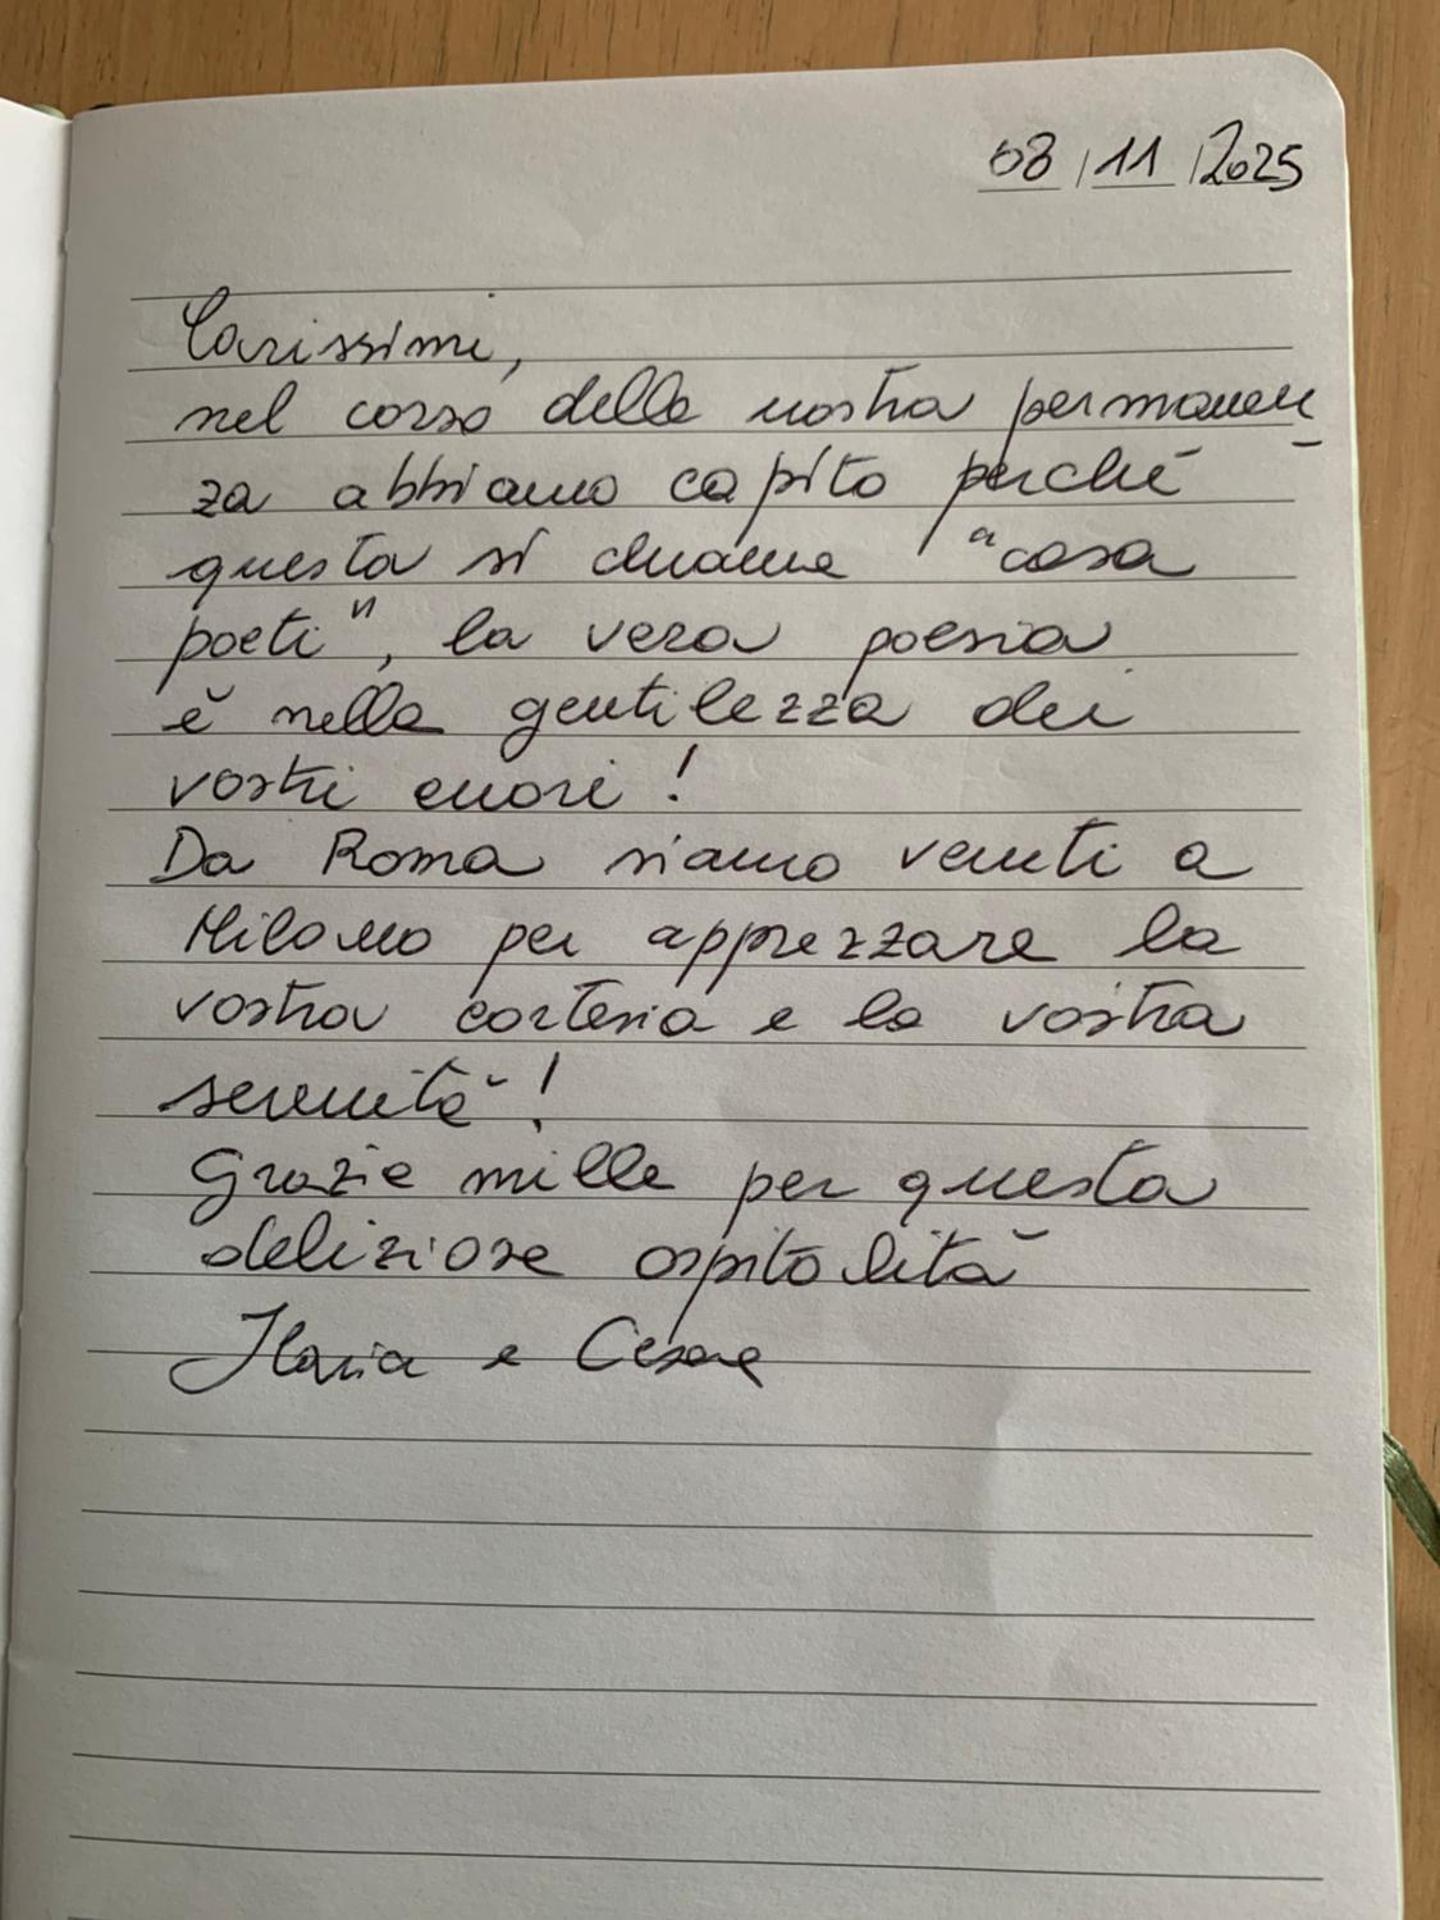 08/11/2025
Carissimi,
nel corso della nostra permanen-
za abbiamo capito perché
questa si chiama "casa
poeti", la vera poesia
è nella gentilezza dei
vostri cuori!
Da Roma siamo venuti a
Milano per apprezzare la
vostra cortesia e la vostra
serenità!
Grazie mille per questa
deliziosa ospitalità
Ilaria e Cesare